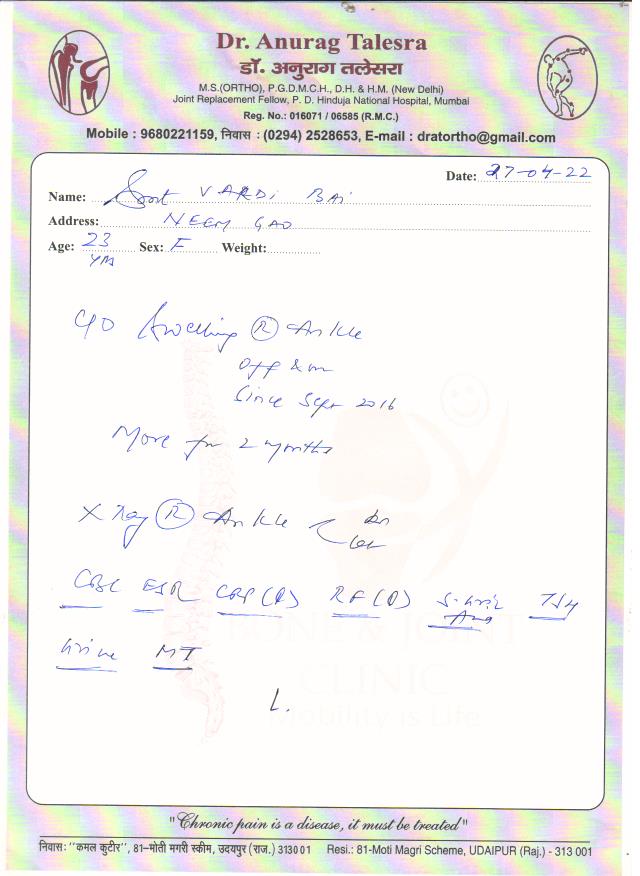 Dr. Anurag Talesra
डॉ. अनुराग तलेसरा
M.S.(ORTHO), P.G.D.M.C.H., D.H. & H.M. (New Delhi)
Joint Replacement Fellow, P. D. Hinduja National Hospital, Mumbai
Reg. No.: 016071 / 06585 (R.M.C.)
Mobile : 9680221159, निवास : (0294) 2528653, E-mail : dratortho@gmail.com
Date: 27-04-22
Name: Smt VARDI BAI
Address: NEEM GAO
Age: 23 Sex: F Weight:
C/O Swelling (R) Ankle
Off & on
Since Sept 2016
More for 2 months
X Ray (R) Ankle AP
Lat
CBC ESR CRP (Q) RF (Q) S. Uric TSH
Acid
Urine MT
L.
BONE N JOINT
CLINIC
Mobility is Life
"Chronic pain is a disease, it must be treated"
निवास: "कमल कुटीर", 81-मोती मगरी स्कीम, उदयपुर (राज.) 313001 Resi.: 81-Moti Magri Scheme, UDAIPUR (Raj.) - 313 001